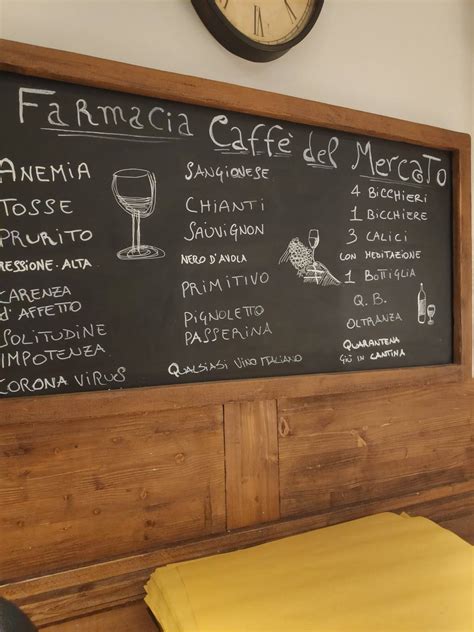 Farmacia Caffè del Mercato
ANEMIA
TOSSE
PRURITO
RESSIONE·ALTA
CARENZA
d'AFFETTO
SOLITUDINE
IMPOTENZA
CORONA VIRUS
SANGIONESE
CHIANTI
SAUVIGNON
NERO D'AVOLA
PRIMITIVO
PIGNOLETTO
PASSERINA
QUALSIASI VINO ITALIANO
4 BICCHIERI
1 BICCHIERE
3 CALICI
CON MEDITAZIONE
1 BOTTIGLIA
Q.B.
OLTRANZA
QUARANTENA
GIÙ IN CANTINA